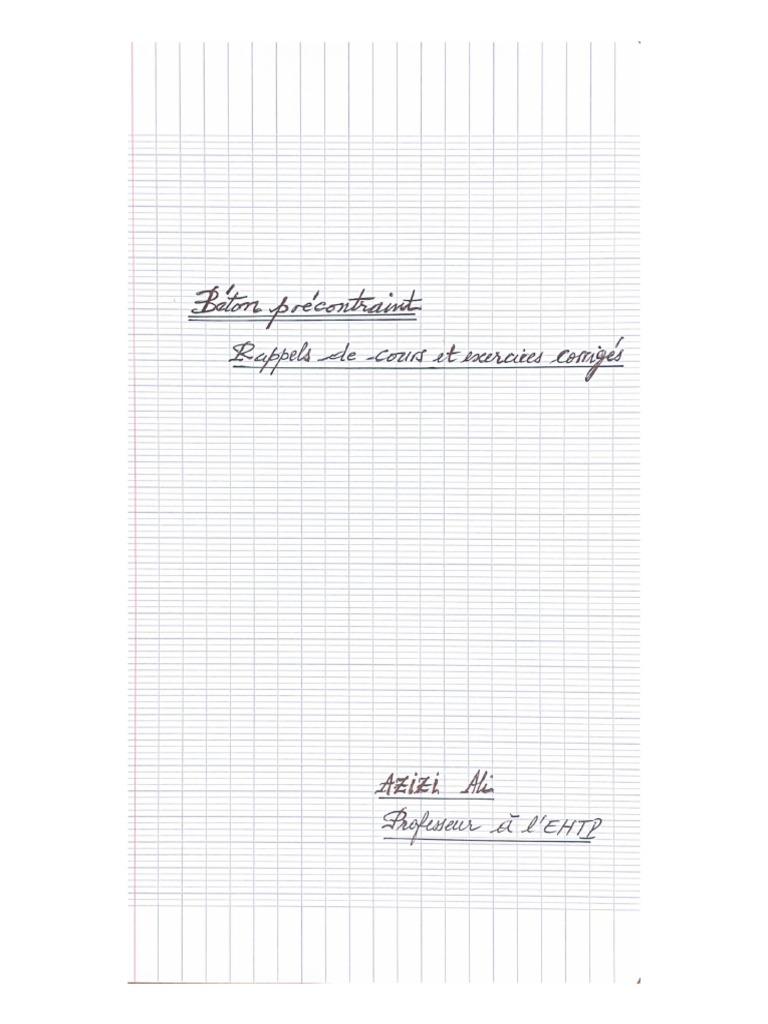 Béton précontraint
Rappels de cours et exercices corrigés
AZIZI Ali
Professeur à l'EHTP